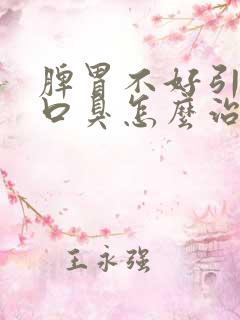 脾胃不好引
口臭怎麼治
王永强